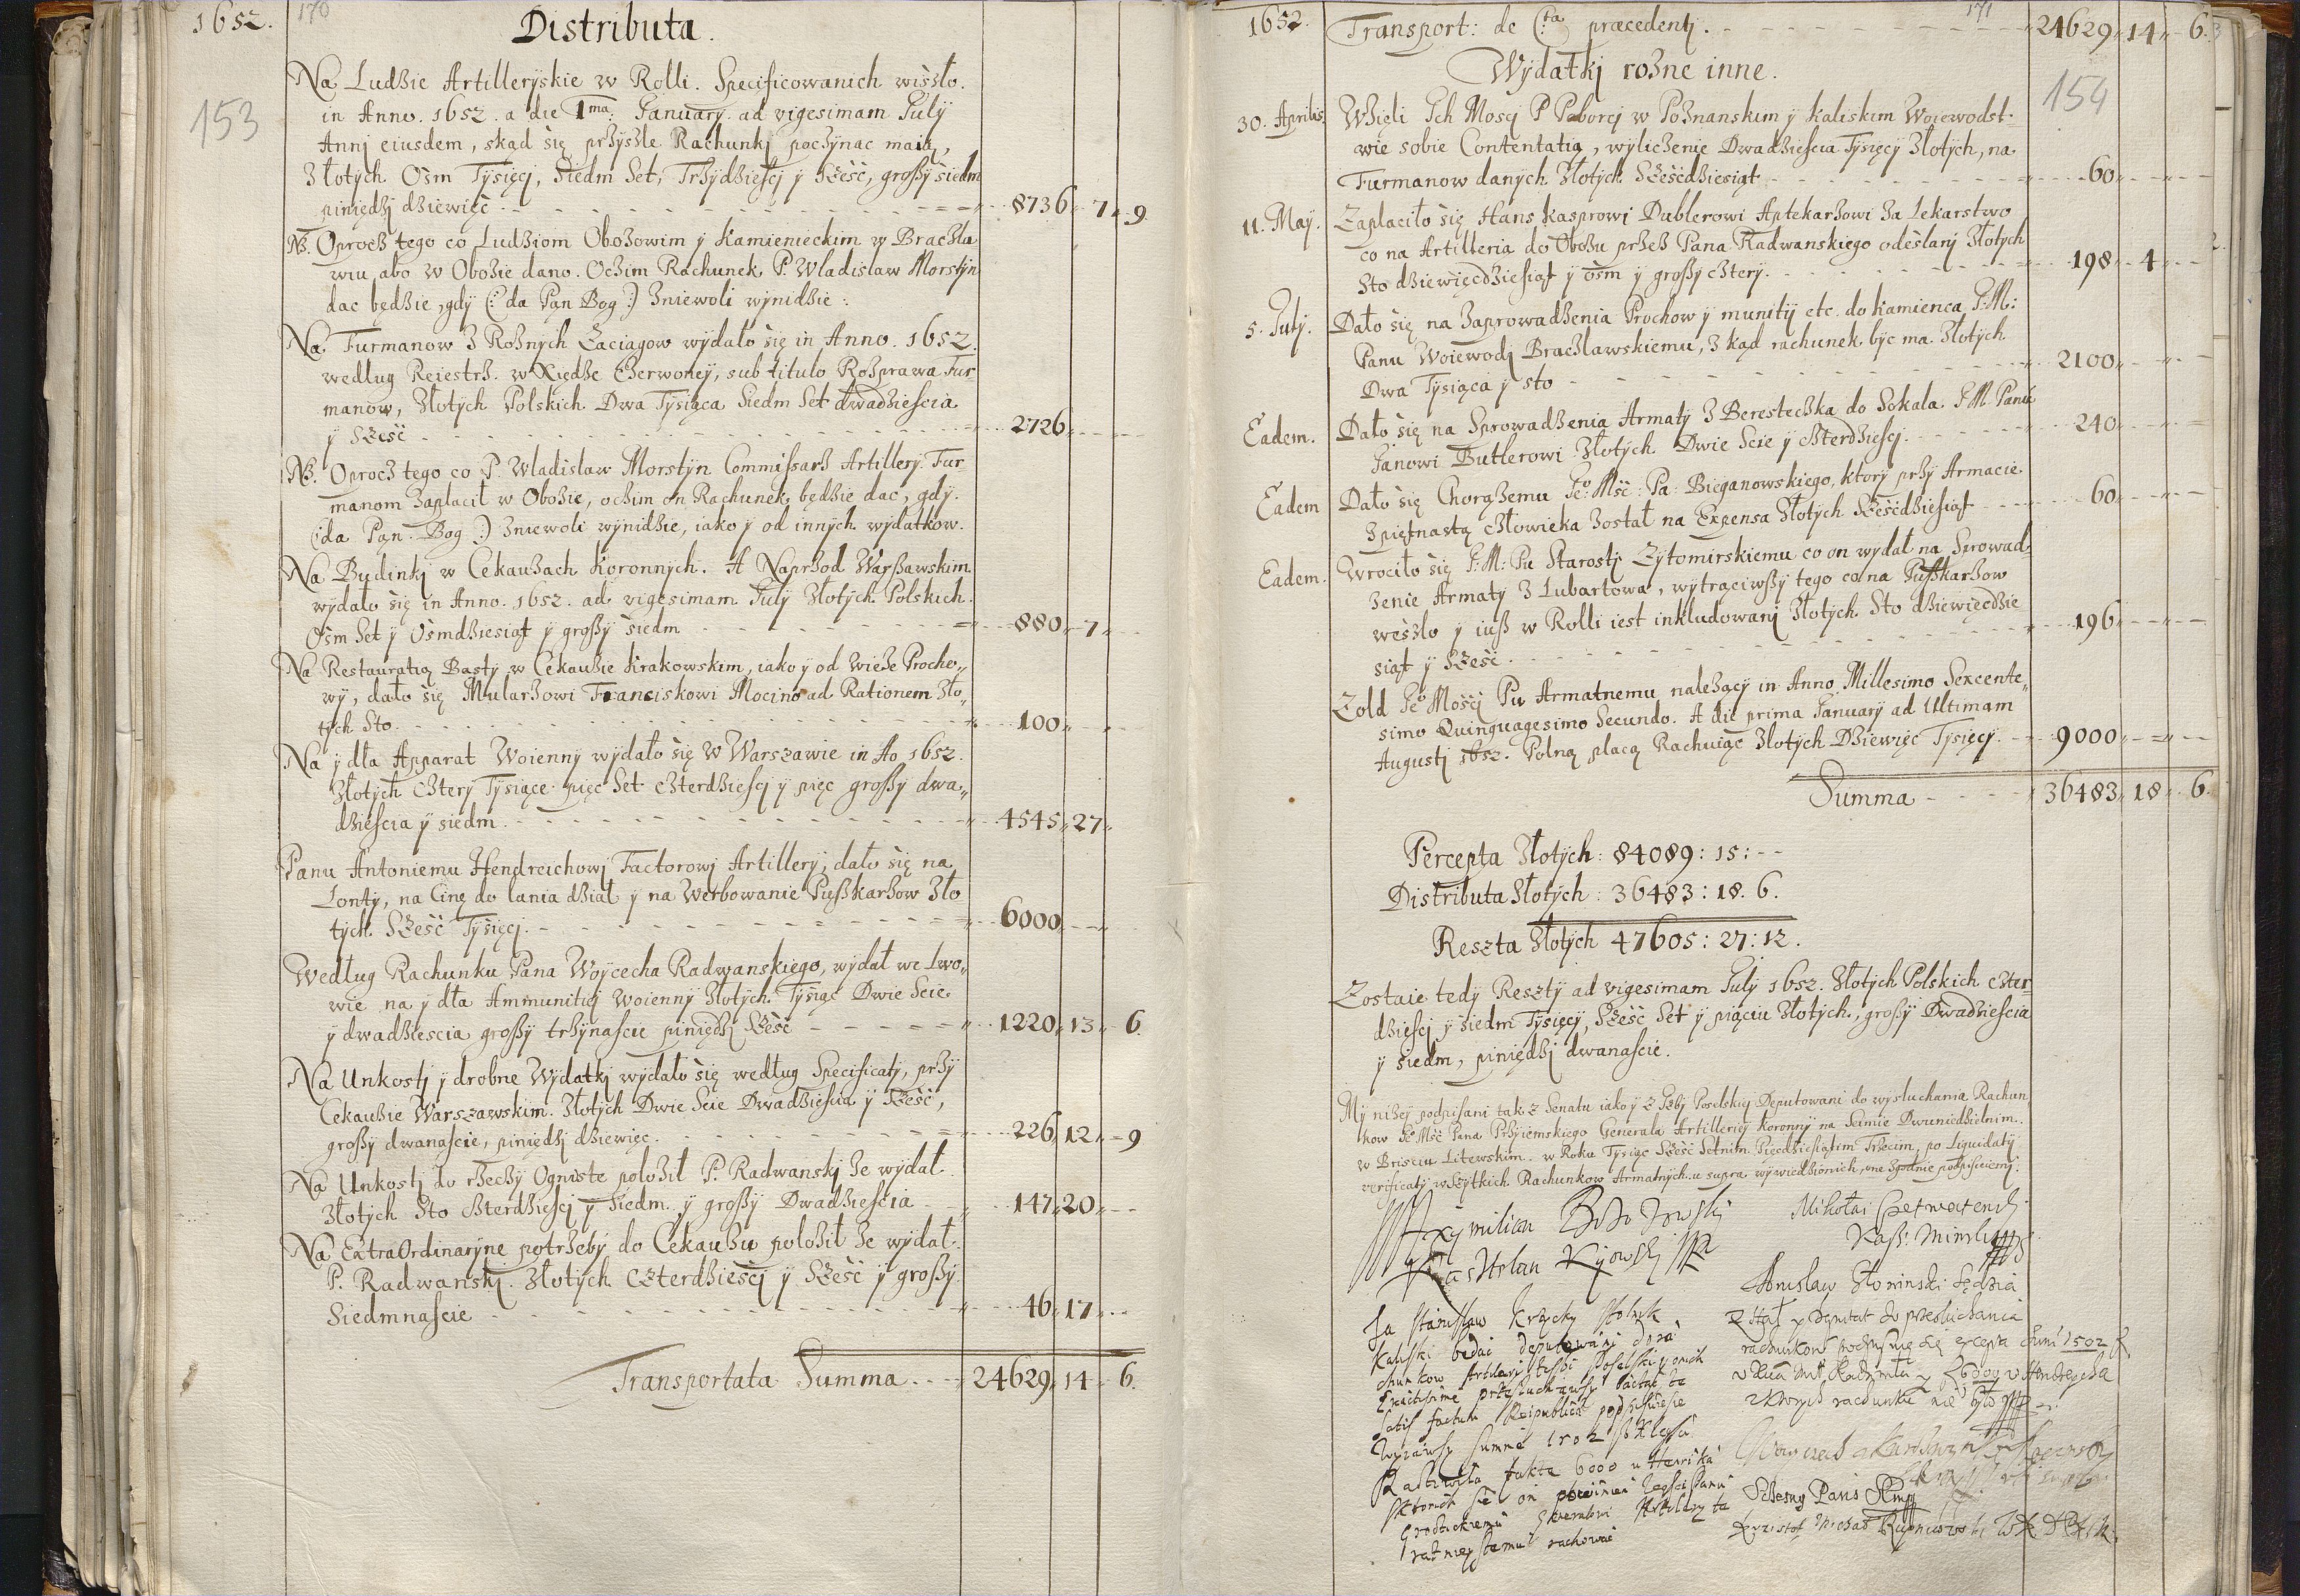 1652.
170
Distributa.
153
Na Ludzie Artilleryskie w Rolli. Specificowanich wisżło.
in Anno. 1652. a die 1ma: January. ad vigesimam July
Annj eiusdem, skąd się przyszłe Rachunkj poczynac maią,
Złotych Ośm Tysięcj, Siedm Set, Trzydziescj y Szesć, großy siedm
piniędzj dziewięć 8736 7 9
NB. Oprocz tego co Ludziom Obozowim y Kamienieckim w Bracła
wiu, abo w Obozie dano. Oczim Rachunek P. Wladislaw Morstyn
dac będzie, gdy (: da Pan Bog :) Zniewoli wynidzie:
Na Furmanow z Rożnych Zaciagow wydało się in Anno. 1652.
według Reiestrz. w Xiędze Czerwoney, sub titulo Rozprawa Fur-
manow, Złotych Polskich Dwa Tysiąca Siedm Set dwadziescia
y Szesć 2726
NB. Oprocz tego co P. Wladislaw Morstyn Commißarz Artillery. Fur-
manom zapłacił w Obozie, oczim on Rachunek będzie dac, gdy.
(:da Pan. Bog :) Zniewoli wynidzie, iako y od innych wydatkow.
Na Budinkj w Cekauzach Koronnych. A Naprzod Warßawskim
wydało się in Anno. 1652. ad vigesimam July Złotych Polskich
Ośm Set y Osmdziesiąt y großy siedm 880 7
Na Restauratią Basty w Cekauzie Krakowskim, iako y od Wieże Procho„
wy, dało się Mularzowi Franciskowi Mocino ad Rationem Zło„
tych Sto 100
Na y dla Apparat Woienny wydało się w Warszawie in Ao 1652.
Złotych Cztery Tysiące pięc Set czterdziescj y pięc großy dwa„
dziescia y siedm 4545 27
Panu Antoniemu Hendreichowj Factorowj Artillery, dało się na
Lonty, na Cinę do lania dział y na Werbowanie Pußkarzow Zło
tych Szesć Tysięcj 6000
Według Rachunku Pana Woycecha Radwanskiego, wydał we Lwo„
wie na y dla Ammunitiej woienny Złotych Tysiąc Dwie Scie
y dwadziescia großy trzynascie piniędzj Szesć 1220 13 6.
Na Unkostj y drobne Wydatkj wydało się według Specificatj, przy
Cekauzie Warszawskim. Złotych Dwie Scie Dwadziescia y Szesć,
großy dwanascie, piniędzj dziewięc. 226 12 9
Na Unkostj do rzeczy Ogniste położił P. Radwanskj że wydał
Złotych Sto czterdziescj y Siedm. y großy Dwadziescia 147 20
Na ExtraOrdinaryne potrzeby do Cekauzu położił że wydał
P. Radwanskj. Złotych Czterdziescj y Szesć y großy
Siedmnascie 46 17
Transportata Summa 24629 14 6.
1652.
171
154
Transport: de Cta præcedentj. 24629 14 6.
Wydatkj rożne inne.
30. Aprilis. Wzięli Ich Moscj P Poborcj w Poznanskim y Kaliskim Woiewodst-
wie sobie Contentatią, wyliczenie Dwadziescia Tysięcy Złotych, na
Furmanow danych Złotych Szescdziesiąt 60
11. Maij. Zapłaciło się Hans Kasprowj Dublerowi Aptekarzowi za Lekarstwo
co na Artilleria do Obozu przez Pana Radwanskiego odesłanj Złotych
Sto dziewięcdziesiąt y ośm y großy cztery. 198 4
5. Julj. Dało się na Zaprowadzenia Prochow y munitij etc. do Kamienca J:M:
Panu Woiewodj Bracławskiemu, z kąd rachunek być ma. Złotych
Dwa Tysiąca y sto 2100
Eadem. Dało się na Sprowadzenia Armaty z Berestecżka do Sokala J.M. Panu
Janowi Butlerowi Złotych Dwie Scie y czterdziescj. 240
Eadem Dało się Chorążemu Jeo: Mść: Pa: Bieganowskiego, ktory przy Armacie
z piętnastą człowieka został na Expensa Złotych Szescdziesiąt 60
Eadem. Wrociło się J:M: Pu Starostj Zytomirskiemu co on wydał na Sprowad-
zenie Armaty z Lubartowa, wytrąciwßy tego co na Pußkarzow
weszło y iuß w Rolli iest inkludowanj Złotych Sto dziewięcdzie
siąt y Szesć. 196
Zold Jeo Moscj Pu Armatnemu nalezący in Anno Millesimo Sexcente„
simo Quinquagesimo Secundo. A die prima January ad Ultimam
Augustj 1652. Polną płacą Rachuiąc Złotych Dziewięc Tysięcy. 9000
Summa 36483 18 6.
Percepta Złotych: 84089: 15: --
Distributa Złotych: 36483: 18. 6.
Reszta Złotych 47605: 27: 12.
Zostaie tedy Reszty ad vigesimam July 1652. Złotych Polskich czter-
dziescj y siedm Tysięcy, Szesć Set y piąciu Złotych, großy Dwadziescia
y siedm, piniędzj dwanascie.
My niżey podpisani tak z Senatu iako y z Izby Poselskiej Deputowani do wysłuchania Rachun
kow Jeo Mść Pana Przyiemskiego Generała Artilleriey Koronny na Seimie Dwuniedzielnim.
w Brisciu Litewskim. w Roku Tysiąc Szesć Setnim Pięcdziesiątim Trzecim, po Liquidatij
verificatij wszytkich Rachunkow Armatnych u supra wywiedzionich, one zgodnie podpisuiemj.
Maxymilian Brzozowskj
Kasztelan Kyowskj
Mikołai Czetwertenskj
Kaß: Minskj
Ja Stanisław Krzycky Stolnik
Kaliski będac deputowani do ra
chunkow Artilerij z Izbi Poselski y onich
Exactissime przesłuchawsy baczac ze
satis factum Reipublicæ podpisuie sie
wyiawsy summe 1502
6000 u Henrika
sie on powinien
Grodzickiemu Generałowi Artilery ta
rachować
Stanislaw Słoninski Sędzia
y Deputat do przesłuchania
rachunkow podpisuię się excepta sumi 1502
6000 u Hendrycha
z ktorych rachunku nie było
Sczesny Paris
Krzistof